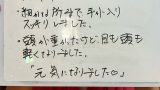 ・細かな所まで手が入り
スッキリしました。
・頭が重かったけど目も頭も
軽くなりました。
「元気になりました○」